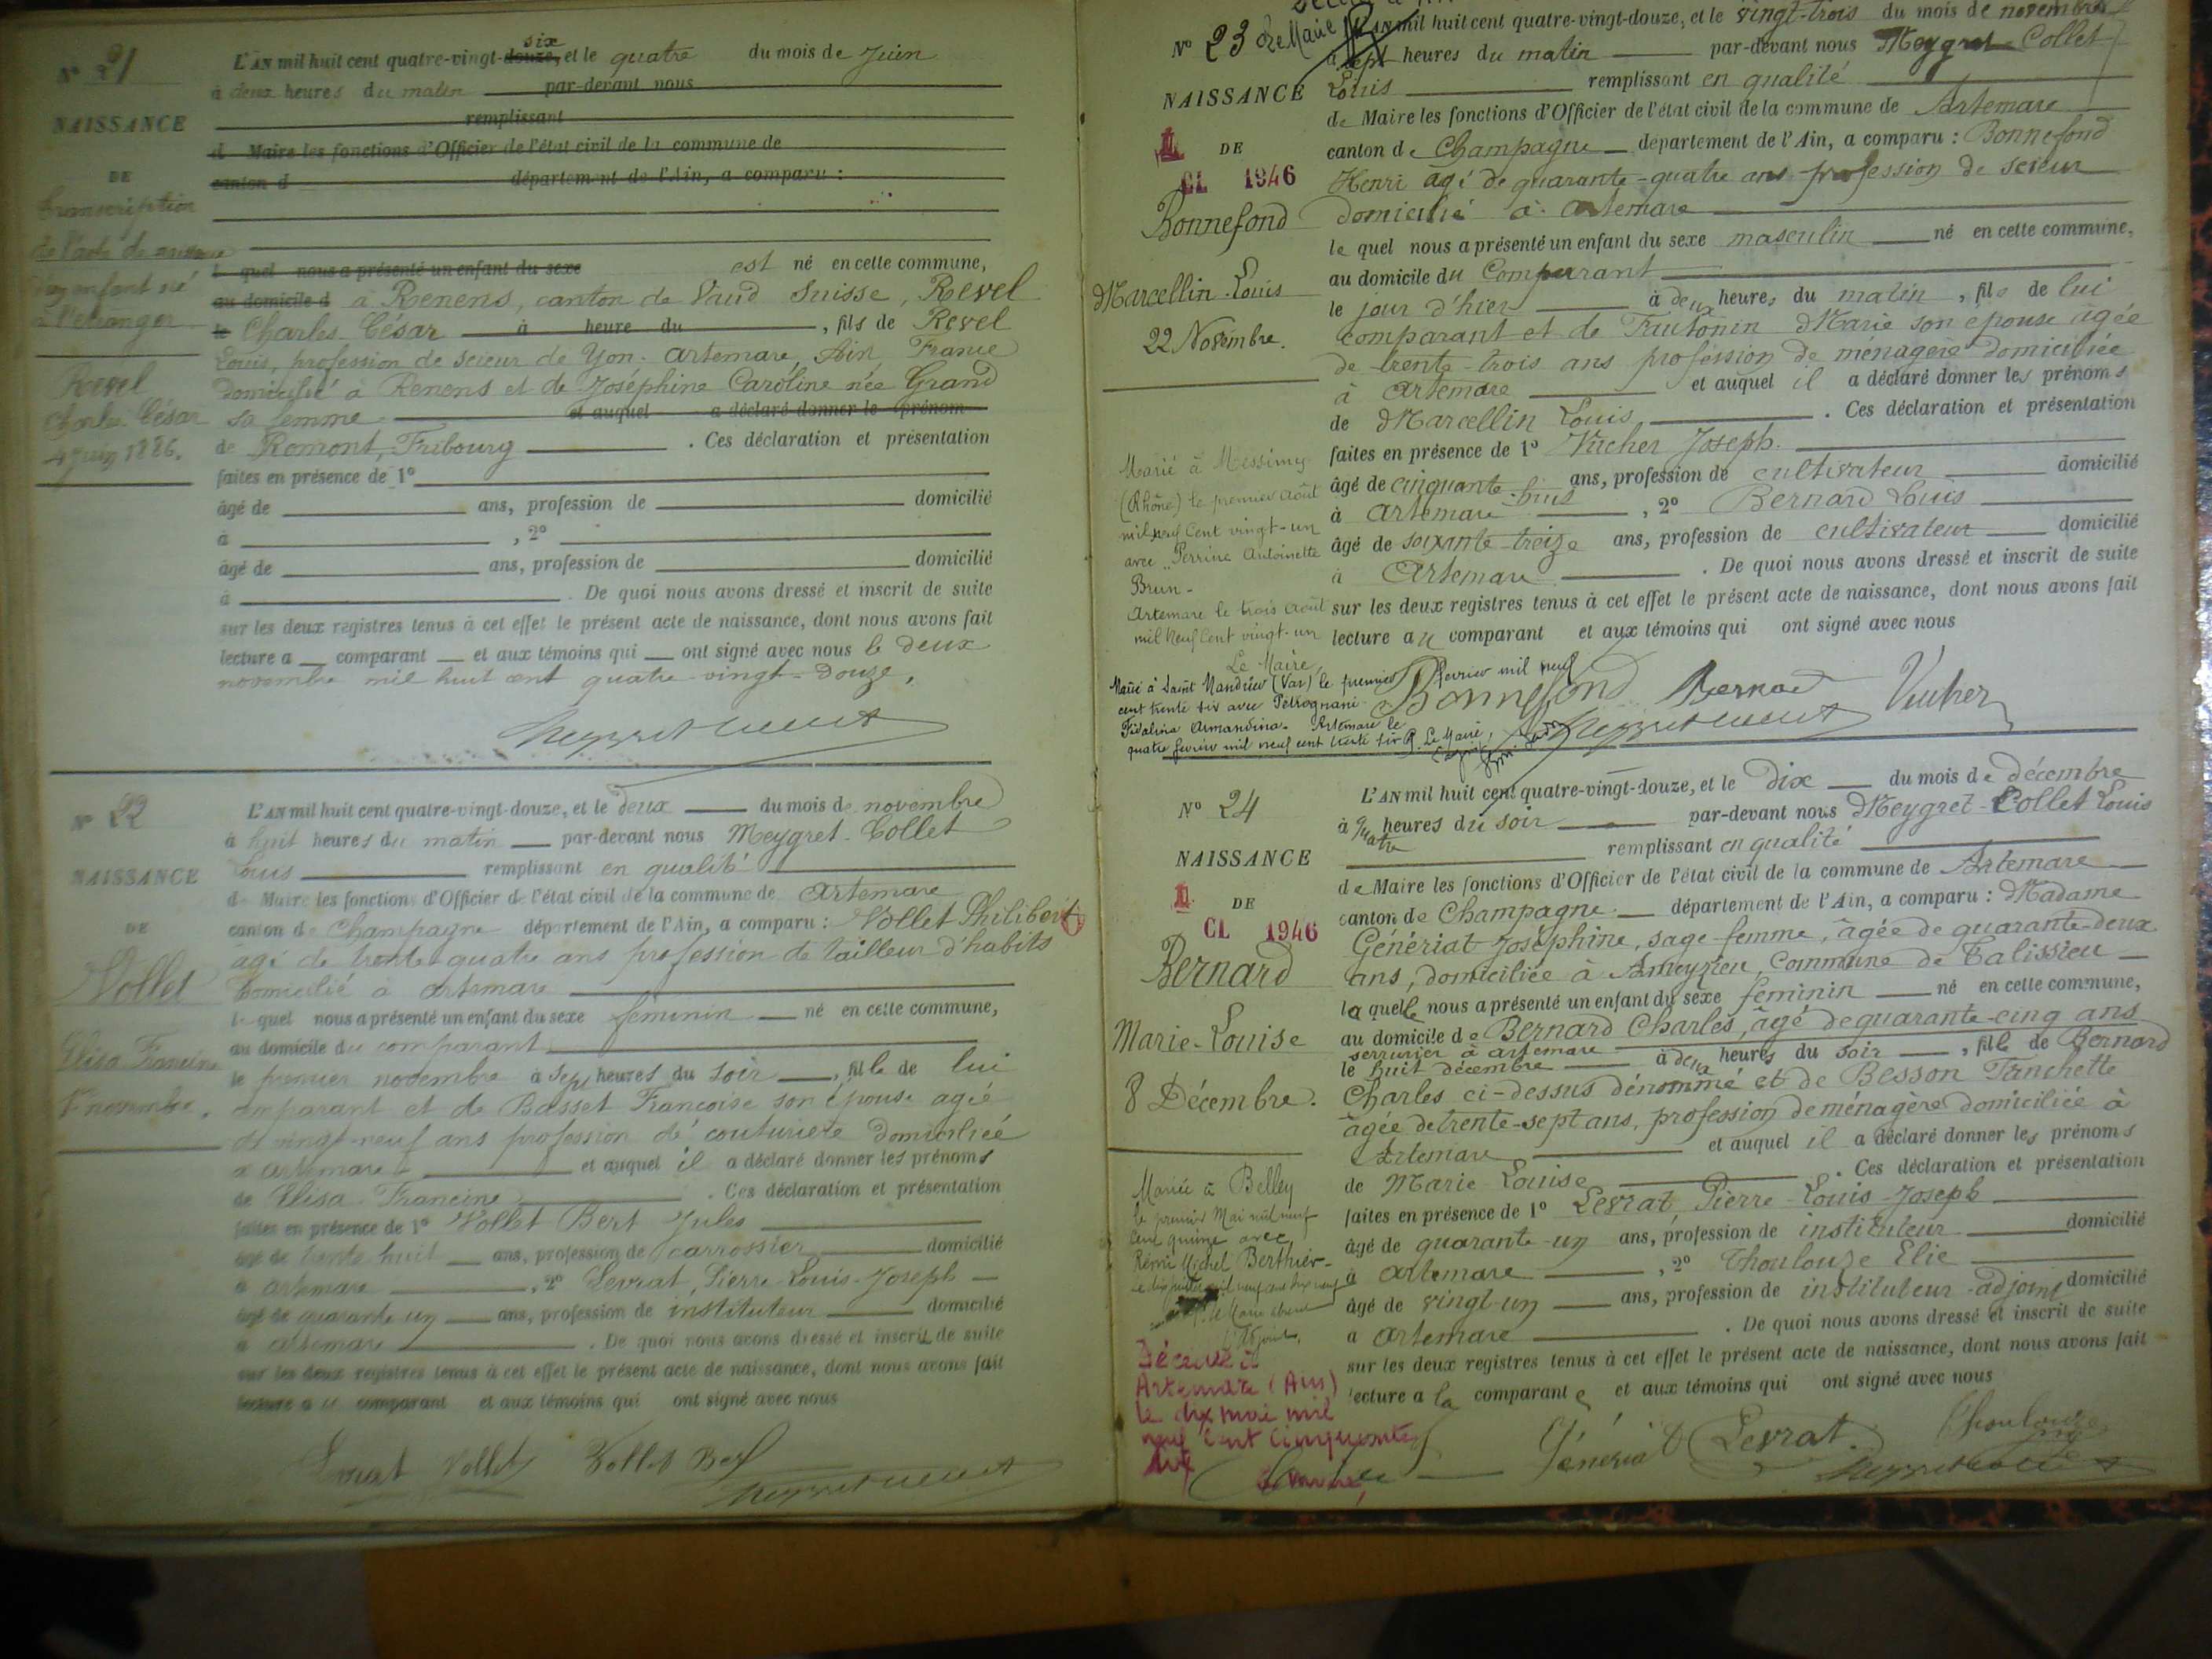 N° 21
NAISSANCE
DE
transcription
de l'acte de naissance
enfant né
à l'étranger
Revel
Charles César
4 juin 1886.
L'AN mil huit cent quatre-vingt-douze, six et le quatre du mois de Juin
à deux heures du matin par-devant nous
remplissant
d Maire les fonctions d'Officier de l'état civil de la commune de
canton d département de l'Ain, a comparu :
l quel nous a présenté un enfant du sexe est né en cette commune,
au domicile d à Renens, canton de Vaud Suisse, Revel
le Charles César à heure du , fils de Revel
Louis, profession de scieur de Yon. Artemare, Ain, France
domicilié à Renens et de Joséphine Caroline née Grand
sa femme et auquel a déclaré donner le prénom
de Romont, Fribourg . Ces déclaration et présentation
faites en présence de 1°
âgé de ans, profession de domicilié
à , 2°
âgé de ans, profession de domicilié
à . De quoi nous avons dressé et inscrit de suite
sur les deux registres tenus à cet effet le présent acte de naissance, dont nous avons fait
lecture a comparant et aux témoins qui ont signé avec nous le deux
novembre mil huit cent quatre-vingt-douze.
N° 22
NAISSANCE
DE
Vollet
Elisa Francine
1er novembre.
L'AN mil huit cent quatre-vingt-douze, et le deux du mois de novembre
à huit heures du matin par-devant nous Meygret-Collet
Louis remplissant en qualité
de Maire les fonctions d'Officier de l'état civil de la commune de Artemare
canton de Champagne département de l'Ain, a comparu : Vollet Philibert
âgé de trente-quatre ans profession de tailleur d'habits
domicilié à Artemare
le quel nous a présenté un enfant du sexe feminin né en cette commune,
au domicile du comparant
le premier novembre à sept heures du soir , fille de lui
comparant et de Basset Françoise son épouse agée
de vingt-neuf ans profession de couturière domiciliée
à Artemare et auquel il a déclaré donner les prénoms
de Elisa Francine . Ces déclaration et présentation
faites en présence de 1° Vollet Bert Jules
âgé de trente huit ans, profession de carrossier domicilié
à Artemare , 2° Levrat, Pierre-Louis-Joseph
âgé de quarante un ans, profession de instituteur domicilié
à Artemare . De quoi nous avons dressé et inscrit de suite
sur les deux registres tenus à cet effet le présent acte de naissance, dont nous avons fait
lecture au comparant et aux témoins qui ont signé avec nous
Levrat Vollet Vollet Bert
N° 23 Le Maire
NAISSANCE
DE
CL 1946
Bonnefond
Marcellin-Louis
22 Novembre.
Marié à Messimy
(Rhône) le premier Août
mil neuf cent vingt-un
avec Perrine Antoinette
Brun-
Artemare le trois Août
mil neuf cent vingt-un
Le Maire,
Marié à Saint Mandrier (Var) le premier février mil neuf
cent trente six avec Petrognani
Fidalina Armandina. Artemare le
quatre février mil neuf cent trente six P. Le Maire,
L'AN mil huit cent quatre-vingt-douze, et le vingt-trois du mois de novembre
à sept heures du matin par-devant nous Meygret-Collet
Louis remplissant en qualité
de Maire les fonctions d'Officier de l'état civil de la commune de Artemare
canton de Champagne département de l'Ain, a comparu : Bonnefond
Henri âgé de quarante-quatre ans profession de scieur
domicilié à Artemare
le quel nous a présenté un enfant du sexe masculin né en cette commune,
au domicile du Comparant
le jour d'hier à deux heures du matin , fils de lui
comparant et de Tautonin Marie son épouse agée
de trente-trois ans profession de ménagère domiciliée
à Artemare et auquel il a déclaré donner les prénoms
de Marcellin Louis . Ces déclaration et présentation
faites en présence de 1° Vucher Joseph.
âgé de cinquante-huit ans, profession de cultivateur domicilié
à Artemare , 2° Bernard Louis
âgé de soixante-treize ans, profession de cultivateur domicilié
à Artemare . De quoi nous avons dressé et inscrit de suite
sur les deux registres tenus à cet effet le présent acte de naissance, dont nous avons fait
lecture au comparant et aux témoins qui ont signé avec nous
Bonnefond Bernard Vucher
N° 24
NAISSANCE
DE
CL 1946
Bernard
Marie-Louise
8 Décembre.
Mariée à Belley
le premier Mai mil neuf
cent quinze avec
Rémi Michel Berthier-
Décédée à
Artemare (Ain)
le dix mai mil
neuf cent cinquante
L'AN mil huit cent quatre-vingt-douze, et le Dix du mois de décembre
à quatre heures du soir par-devant nous Meygret-Collet Louis
remplissant en qualité
de Maire les fonctions d'Officier de l'état civil de la commune de Artemare
canton de Champagne département de l'Ain, a comparu : Madame
Génériat Joséphine, sage-femme, âgée de quarante-deux
ans, domiciliée à Ameyzieu, Commune de Talissieu
la quelle nous a présenté un enfant du sexe feminin né en cette commune,
au domicile de Bernard Charles, âgé de quarante-cinq ans
serrurier à Artemare
le huit décembre à deux heures du soir , fille de Bernard
Charles ci-dessus dénommé et de Besson Fanchette
âgée de trente-sept ans, profession de ménagère domiciliée à
Artemare et auquel il a déclaré donner les prénoms
de Marie Louise . Ces déclaration et présentation
faites en présence de 1° Levrat, Pierre-Louis-Joseph
âgé de quarante-un ans, profession de instituteur domicilié
à Artemare , 2° Thoulouze Elie
âgé de vingt-un ans, profession de instituteur-adjoint domicilié
à Artemare . De quoi nous avons dressé et inscrit de suite
sur les deux registres tenus à cet effet le présent acte de naissance, dont nous avons fait
lecture a la comparante et aux témoins qui ont signé avec nous
Génériat Levrat Thoulouze